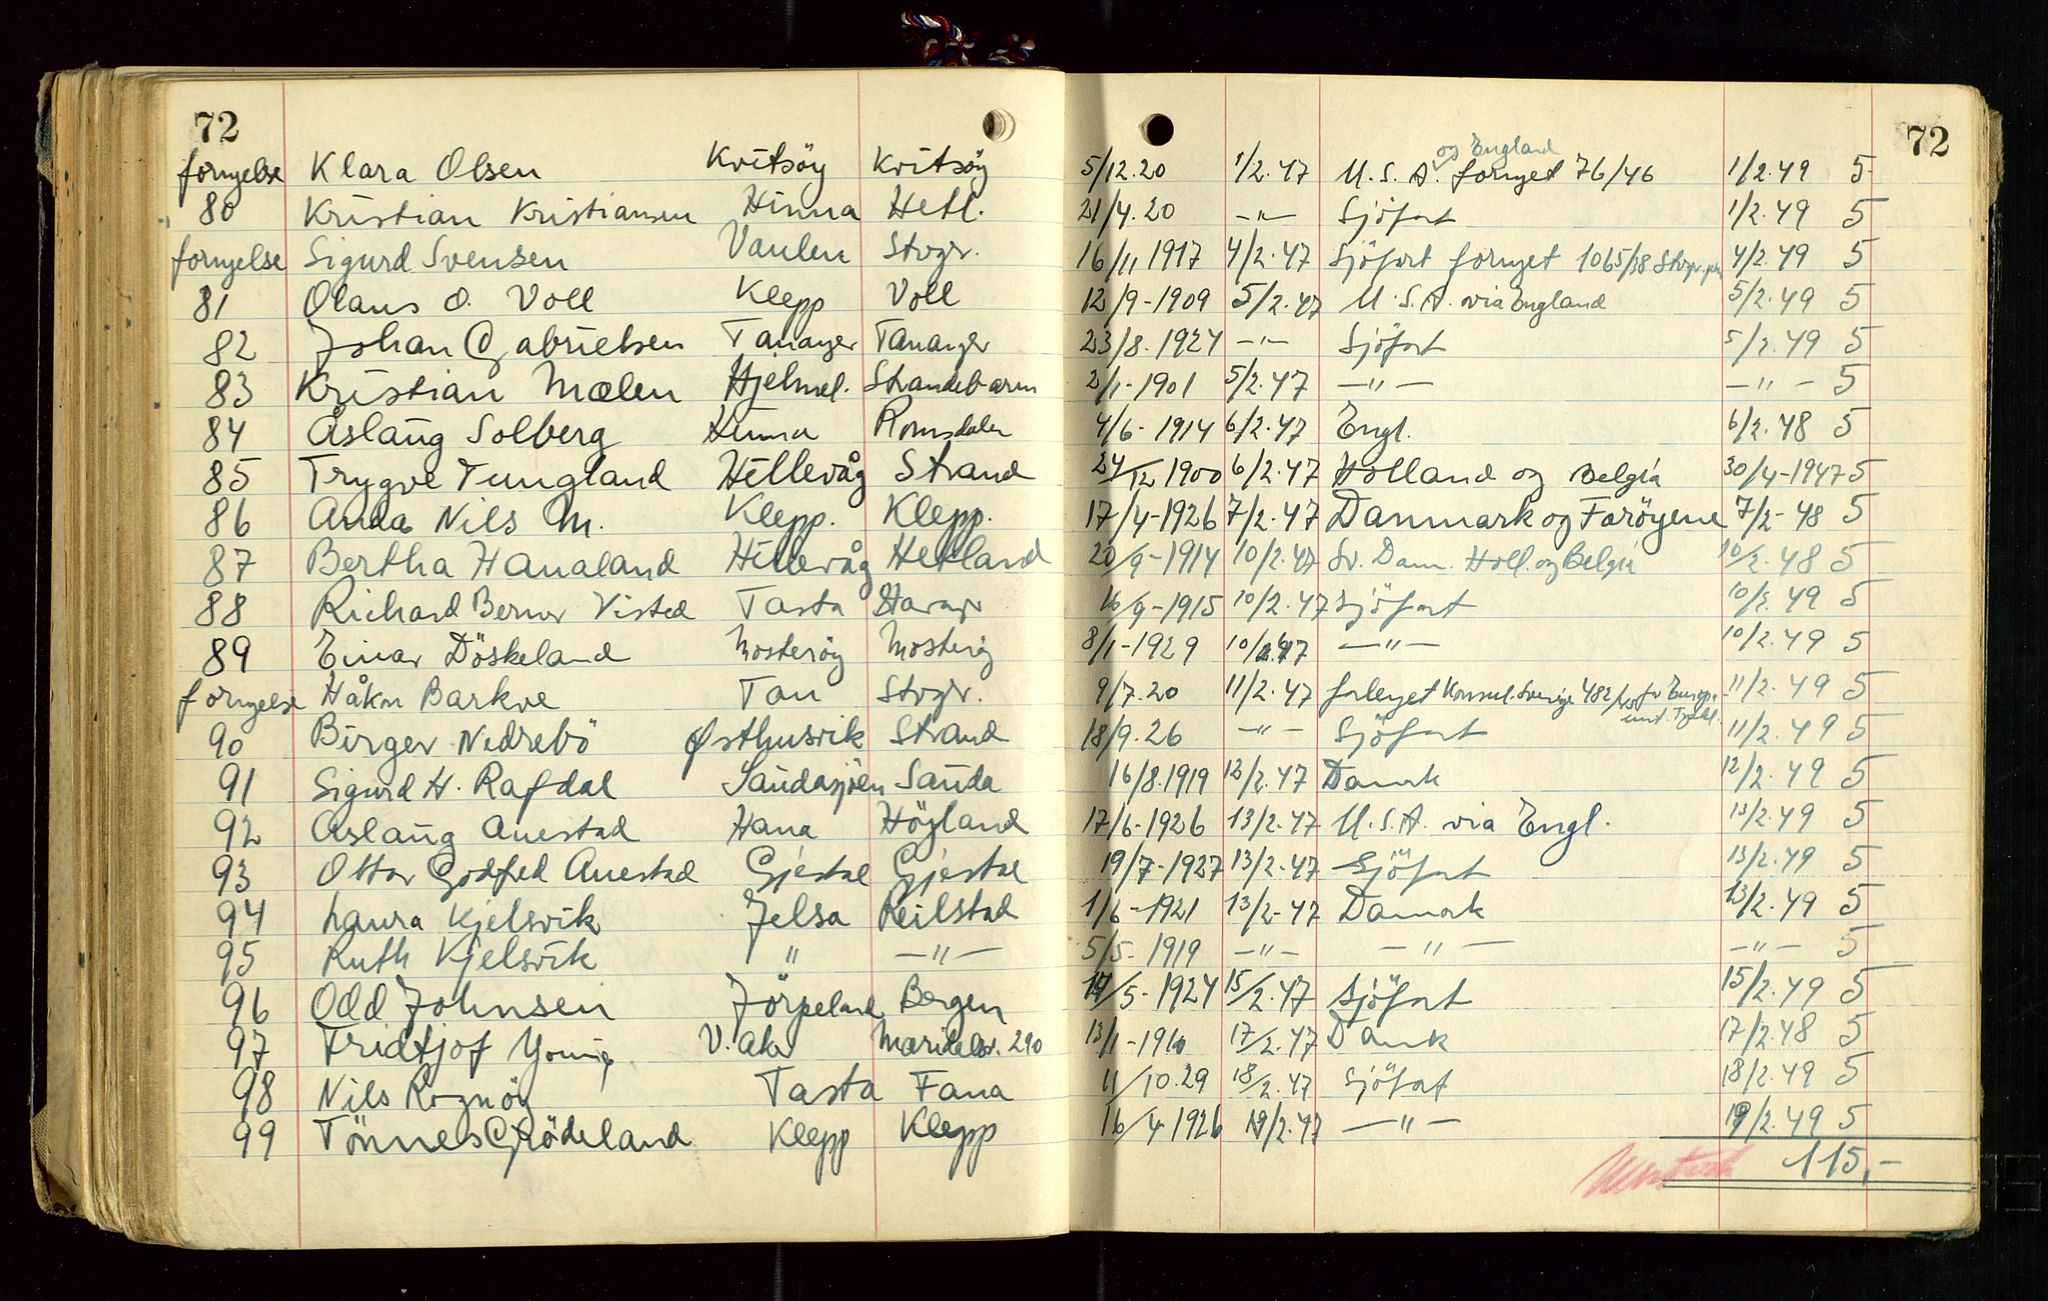 72 72
fornyelse Klara Olsen Kvitsöy Kvitsöy 5/12.20 1/2.47 U.S.A. og England fornyet 76/46 1/2.49 5
80 Kristian Kristiansen Hinna Hetl. 21/4.20 -"- Sjöfart 1/2.49 5
fornyelse Sigurd Svensen Vaulen Stvgr. 16/11 1917 4/2.47 Sjöfart fornyet 1065/38 Stvgr. 4/2.49 5
81 Olaus O. Voll Klepp Voll 12/9-1909 5/2.47 U.S.A. via England 5/2.49 5
82 Johan Gabrielsen Tananger Tananger 23/8.1924 -"- Sjöfart 5/2.49 5
83 Kristian Mælen Hjelmel. Strandebarm 2/1-1901 5/2.47 -"- -"- 5
84 Åslaug Solberg Hinna Romsdalen 4/6-1914 6/2.47 Engl. 6/2.48 5
85 Trygve Tungland Hillevåg Strand 24/12 1900 6/2.47 Holland og Belgia 30/4-1947 5
86 Anda Nils M. Klepp. Klepp. 17/4-1926 7/2.47 Danmark og Faröyene 7/2-48 5
87 Bertha Hanaland Hillevåg Hetland 20/9-1914 10/2.47 Sv. Danm. Holl. og Belgia 10/2.48 5
88 Richard Berner Visted Tasta Stavngr 16/9-1915 10/2.47 Sjöfart 10/2.49 5
89 Einar Döskeland Mosteröy Mosteröy 8/1-1929 10/2.47 -"- 10/2.49 5
fornyelse Håkon Barkve Tau Stvgr. 9/7.20 11/2.47 forlenget Konsul. Sverige 482/45 for Europa unt. Tyskl. 11/2.49 5
90 Birger Nedrebö Østhusvik Strand 18/9.26 -"- Sjöfart 11/2.49 5
91 Sigurd H. Rafdal Saudasjöen Sauda 16/8.1919 12/2.47 Danmk 12/2.49 5
92 Aslaug Auestad Hana Höyland 17/6-1926 13/2.47 U.S.A. via Engl. 13/2.49 5
93 Ottar Godfred Auestad Gjestal Gjestal 19/7-1927 13/2.47 Sjöfart 13/2.49 5
94 Laura Kjelsvik Jelsa Reilstad 1/6-1921 13/2-47 Danmark 13/2.49 5
95 Ruth Kjelsvik " -"- 5/5-1919 -"- -"- -"- 5
96 Odd Johnsen Jörpeland Bergen 14/5-1924 15/2.47 Sjöfart 15/2.49 5
97 Fridtjof Young V. aker Maridalsv. 290 13/1-1910 17/2.47 Danmk 17/2.48 5
98 Nils Rognöy Tasta Fana 11/10.29 18/2.47 Sjöfart 18/2.49 5
99 Tönnes Grödeland Klepp Klepp 16/4 1926 19/2.47 -"- 19/2.49 5
115,-